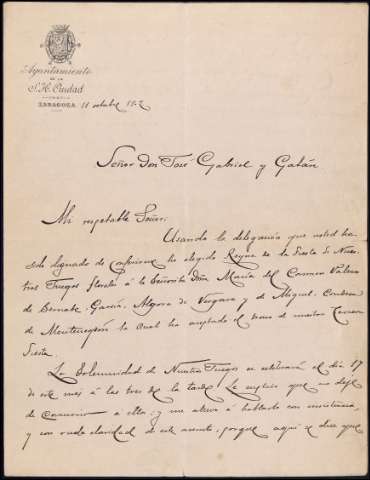 Ayuntamiento
DE LA
S. H. Ciudad
ZARAGOZA 11 octubre 1902
Señor Don José Gabriel y Galán
Mi respetable Señor:
Usando la delegación que usted ha
sido dignado de conferirme he elegido Reyna de la Fiesta de Nues-
tros Juegos florales á la Señorita Dña María del Carmen Valenz
de Bernabe, García, Algora de Vergara y de Miguel, Condesa
de Montenegrón la cual ha aceptado el
Fiesta.
La Solemnidad de Nuestros Juegos se celebrará el día 17
de este mes á las tres de la tarde. Le suplico que no deje
de á ella; y me atrevo á hablarle con insistencia,
y con ruda claridad de este asunto, porque aquí se dice que